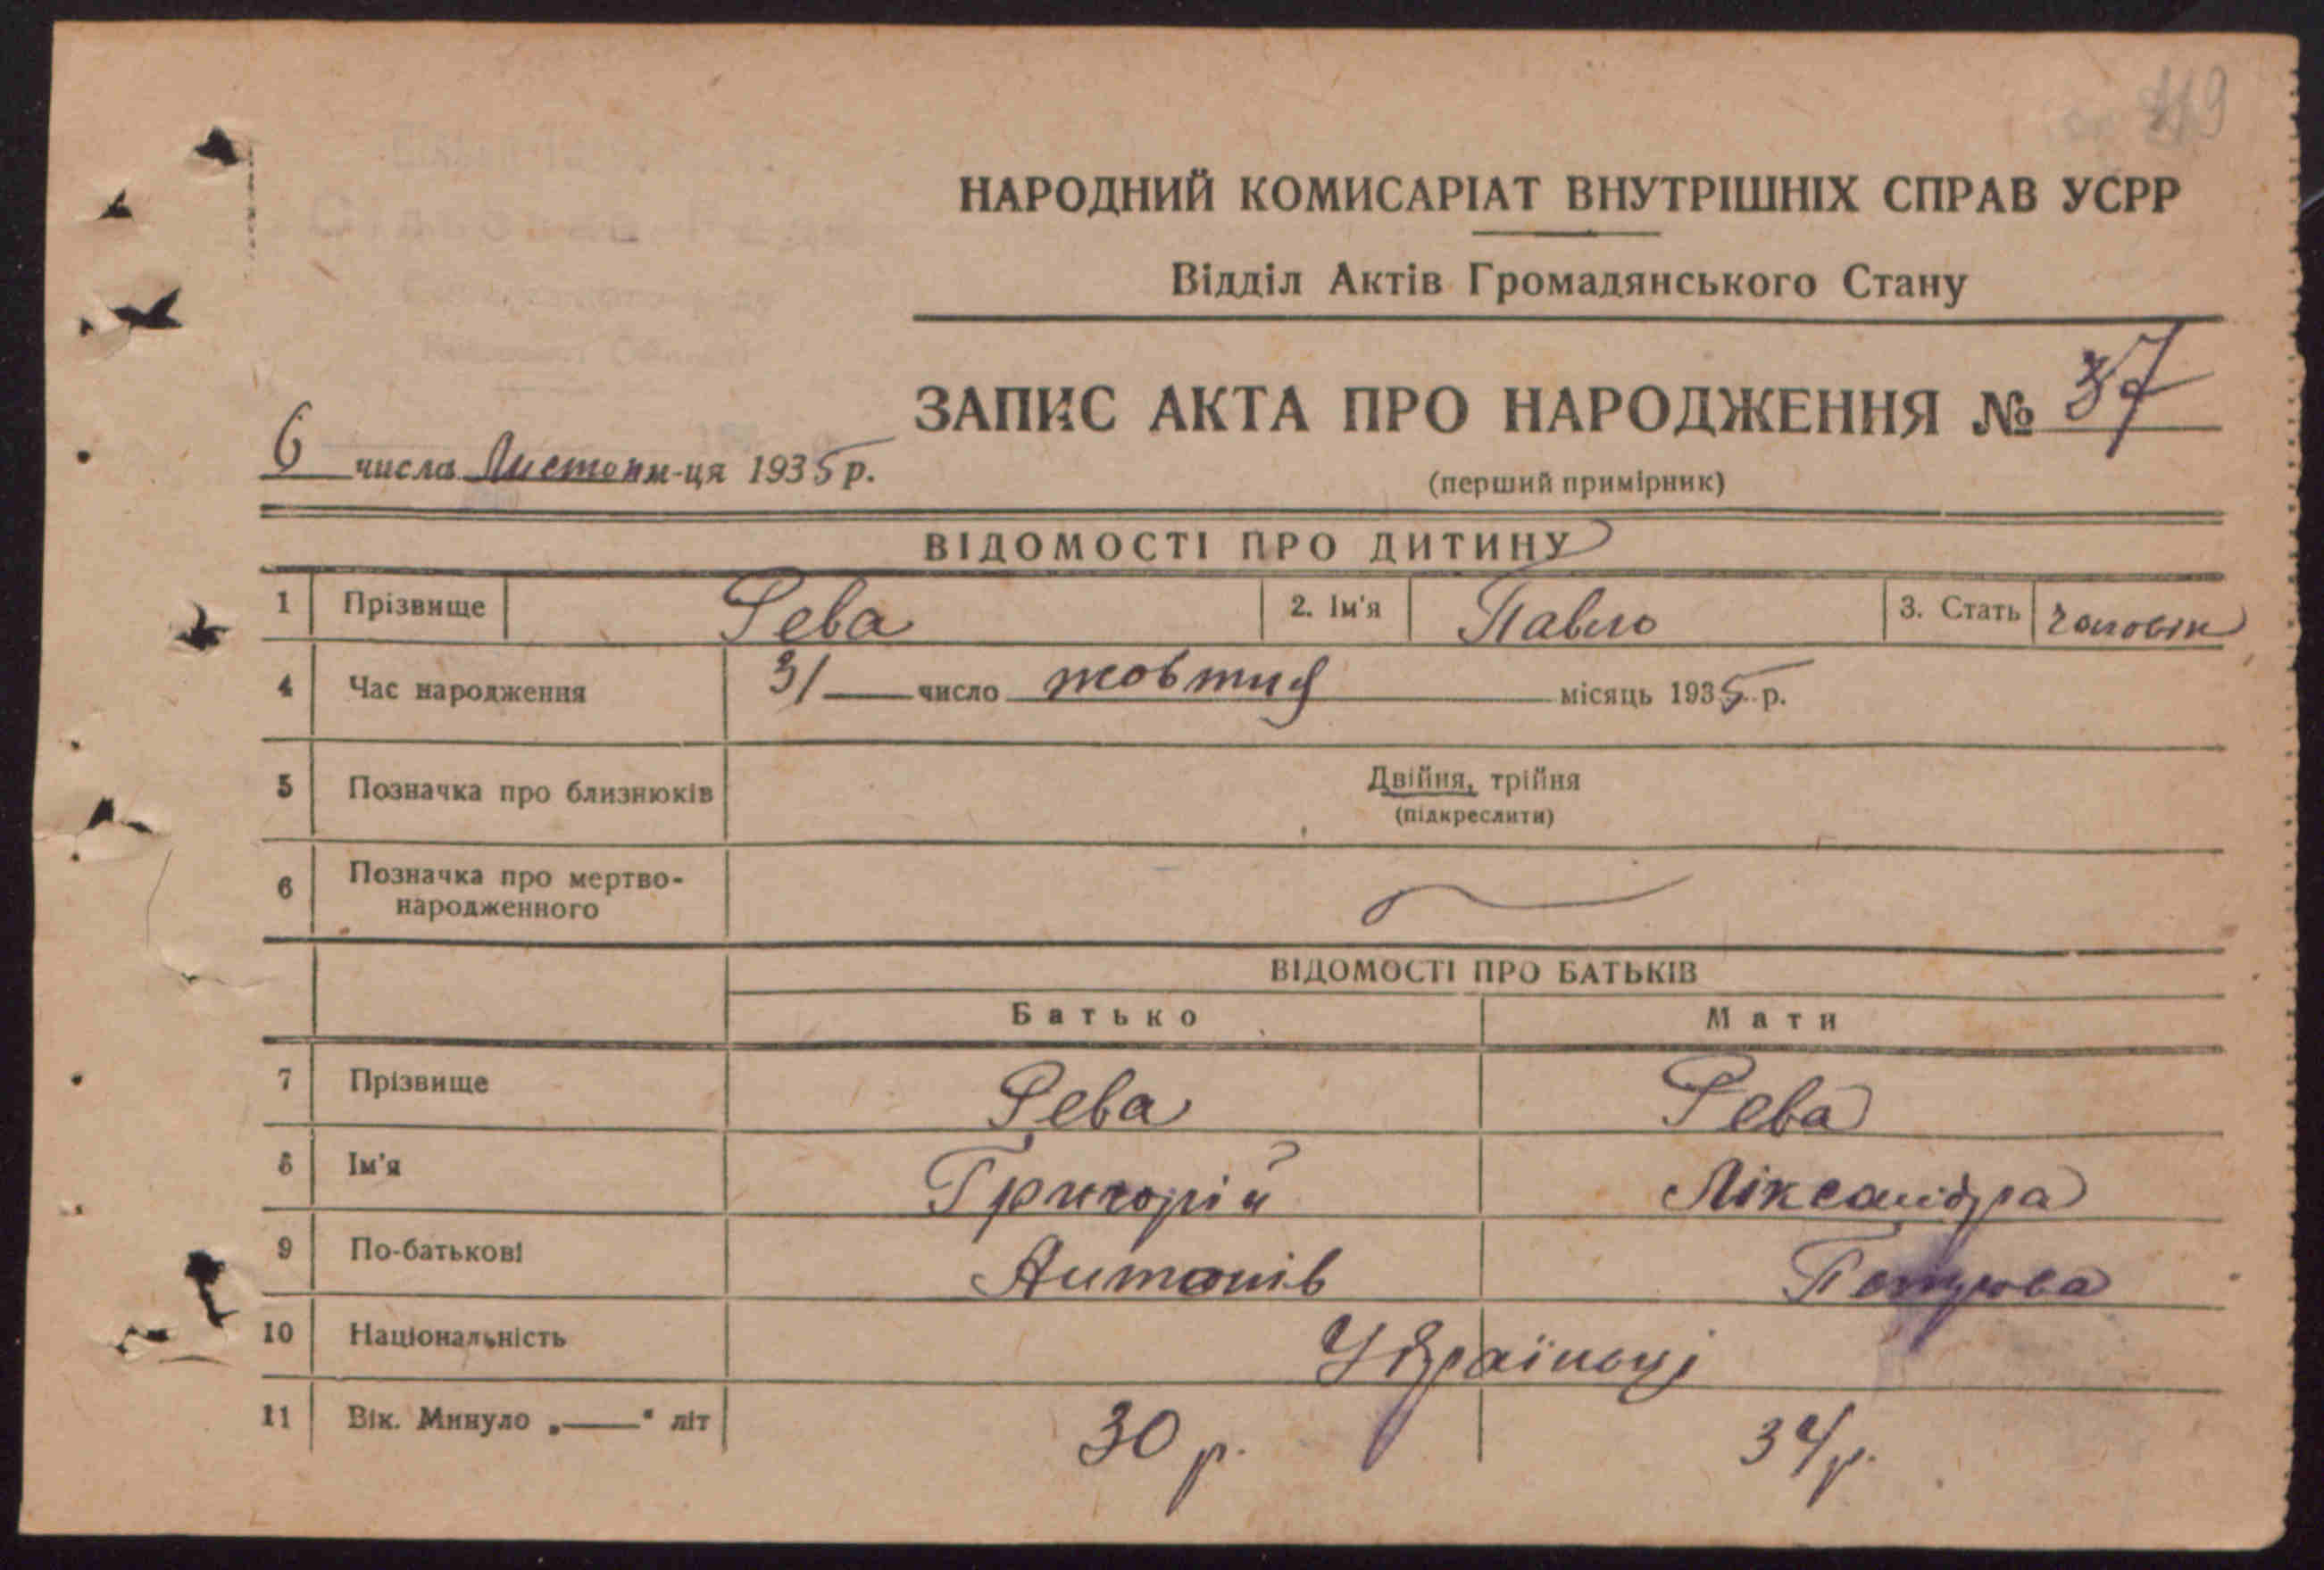 НАРОДНИЙ КОМИСАРІАТ ВНУТРІШНІХ СПРАВ УСРР
Відділ Актів Громадянського Стану
ЗАПИС АКТА ПРО НАРОДЖЕННЯ № 37
6 числа Листопм-ця 1935 р.
(перший примірник)
ВІДОМОСТІ ПРО ДИТИНУ
1 Прізвище Рева 2. Ім'я Павло 3. Стать чоловік
4 Час народження 31 число жовтня місяць 1935 р.
5 Позначка про близнюків Двійня, трійня
(підкреслити)
6 Позначка про мертво-
народженного
ВІДОМОСТІ ПРО БАТЬКІВ
Батько Мати
7 Прізвище Рева Рева
8 Ім'я Григорій Ліксандра
9 По-батькові Антонів Петрова
10 Національність Українці
11 Вік. Минуло „—“ літ 30 р. 34 р.